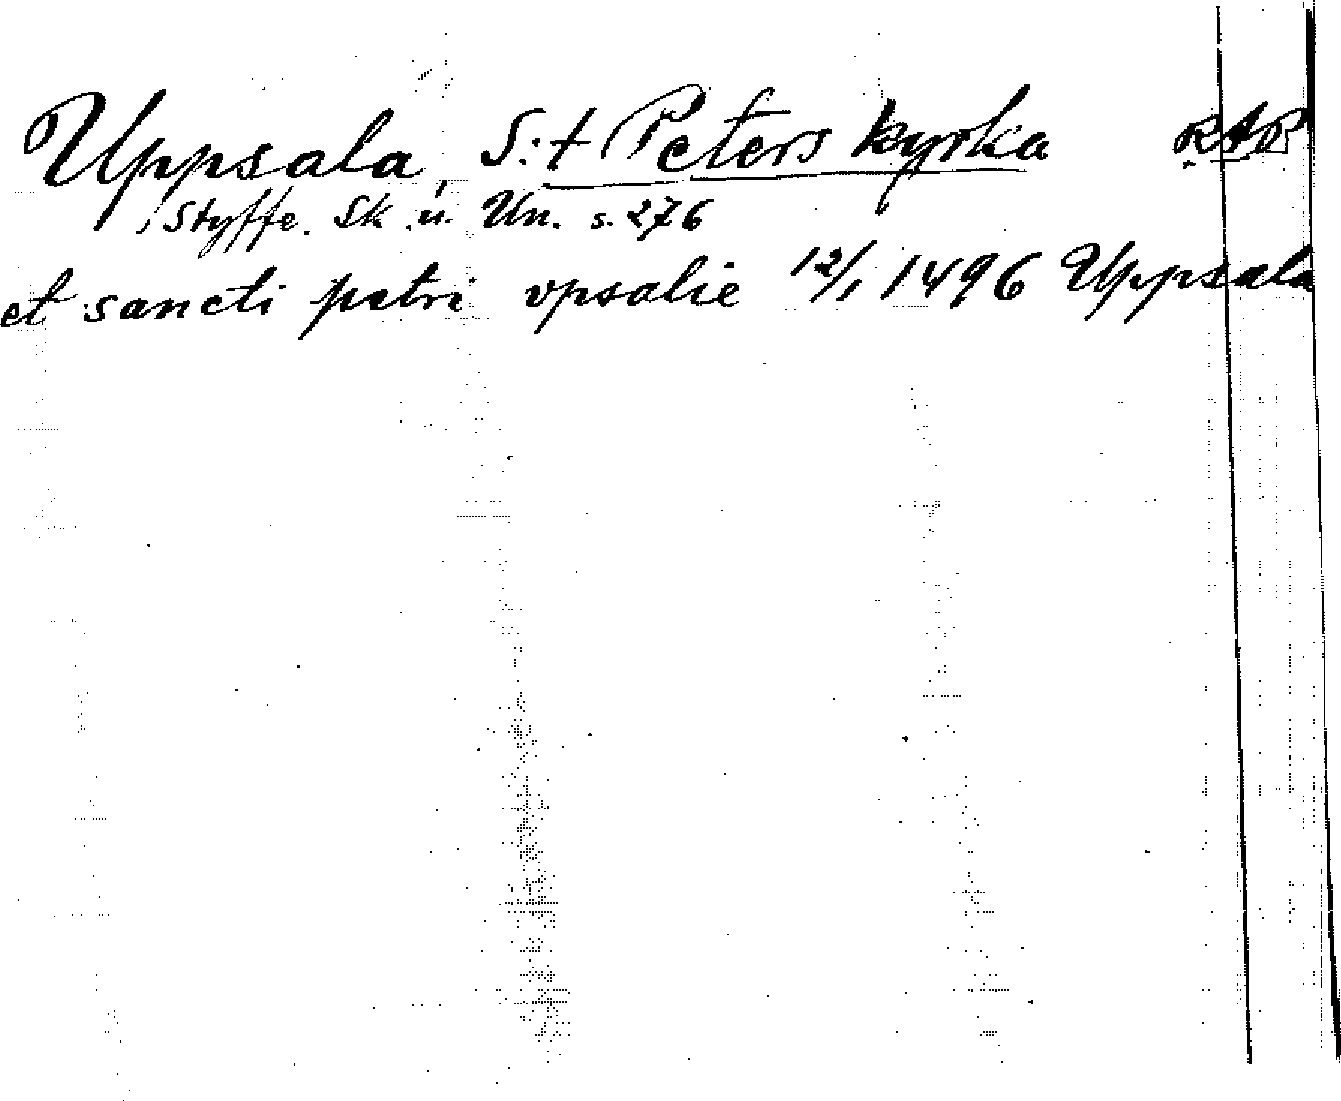 Uppsala, S:t Peters kyrka RAP
Styffe. Sk. u. Un. s. 276
et sancti petri vpsalie 12/1 1496 Uppsala